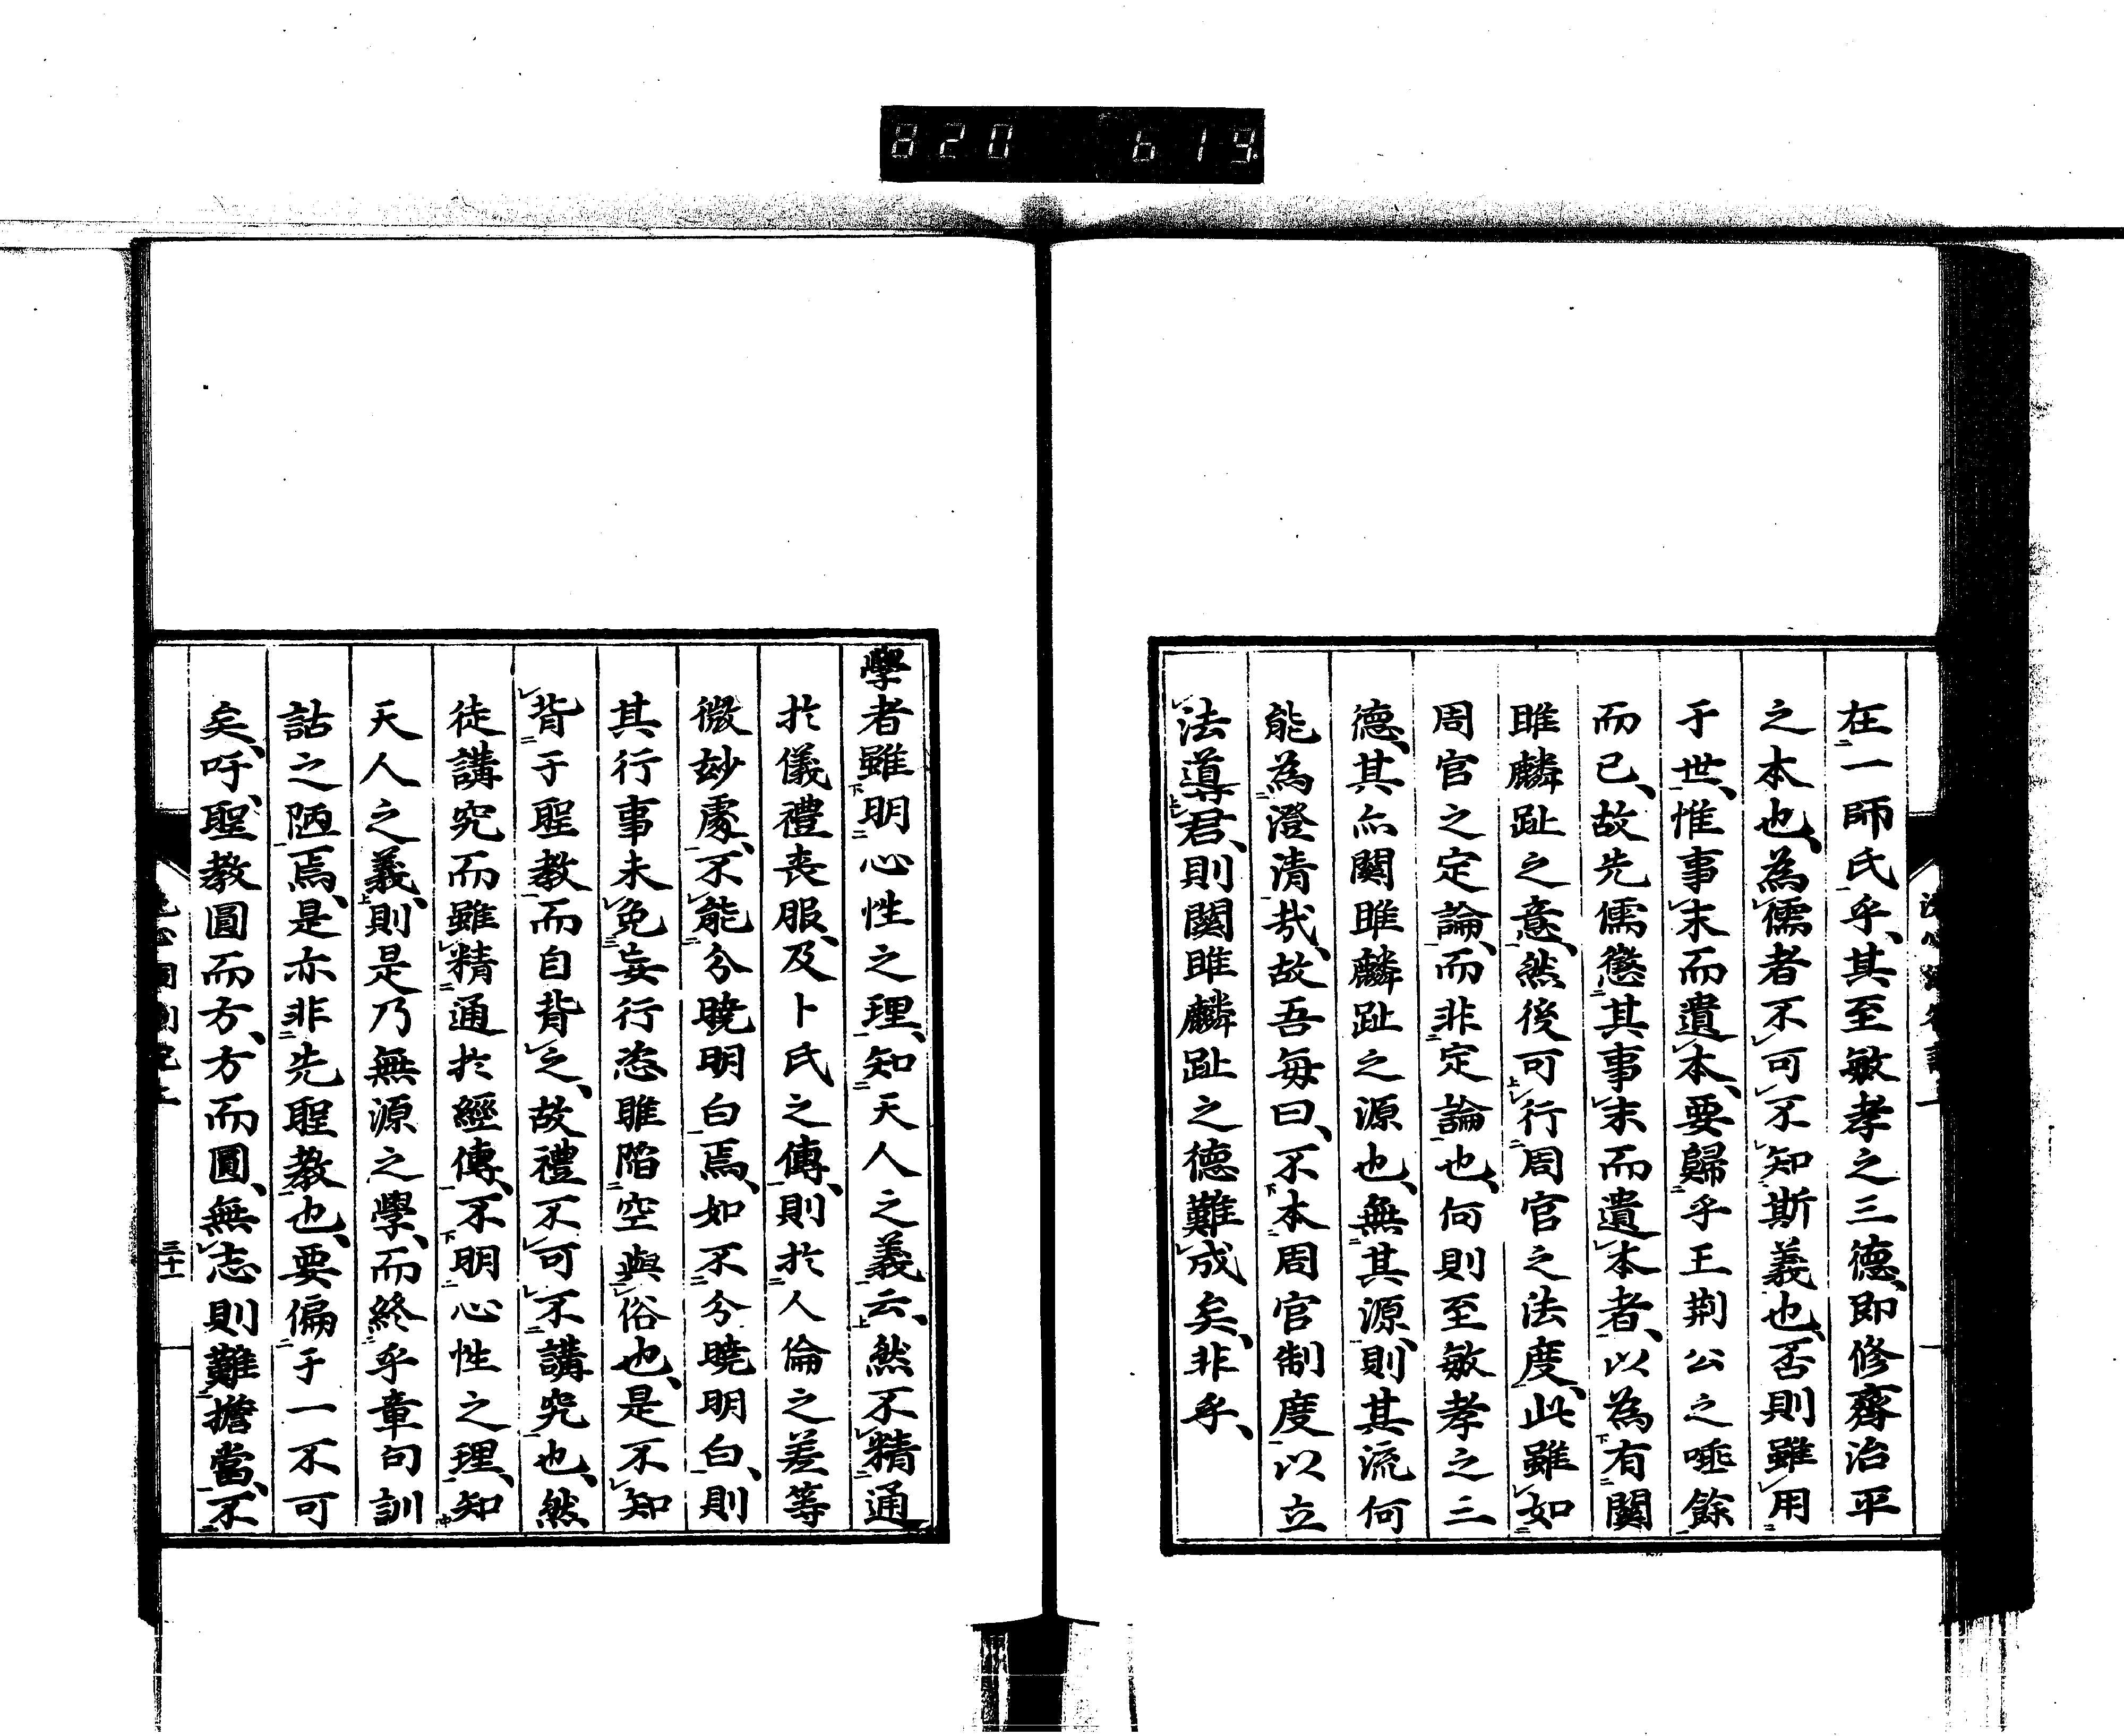 820 619
在一師氏乎、其至敏孝之三德、即修齊治平
之本也、為儒者不可不知斯義也、否則雖用
于世、惟事末而遺本、要歸乎王荊公之唾餘
而已、故先儒懲其事末而遺本者、以為有關
雎麟趾之意、然後可行周官之法度、此雖如
周官之定論、而非定論也、何則至敏孝之三
德、其亦關雎麟趾之源也、無其源、則其流何
能為澄清哉、故吾每曰、不本周官制度以立
法導君、則關雎麟趾之德難成矣、非乎、
學者雖明心性之理、知天人之義云、然不精通
於儀禮喪服、及卜氏之傳、則於人倫之差等
微妙處、不能分曉明白焉、如不分曉明白、則
其行事未免妄行恣睢陷空與俗也、是不知
背于聖教而自背之、故禮不可不講究也、然
徒講究而雖精通於經傳、不明心性之理、知
天人之義、則是乃無源之學、而終乎章句訓
詁之陋焉、是亦非先聖教也、要偏于一不可
矣、吁、聖教圓而方、方而圓、無志則難擔當、不
三十一